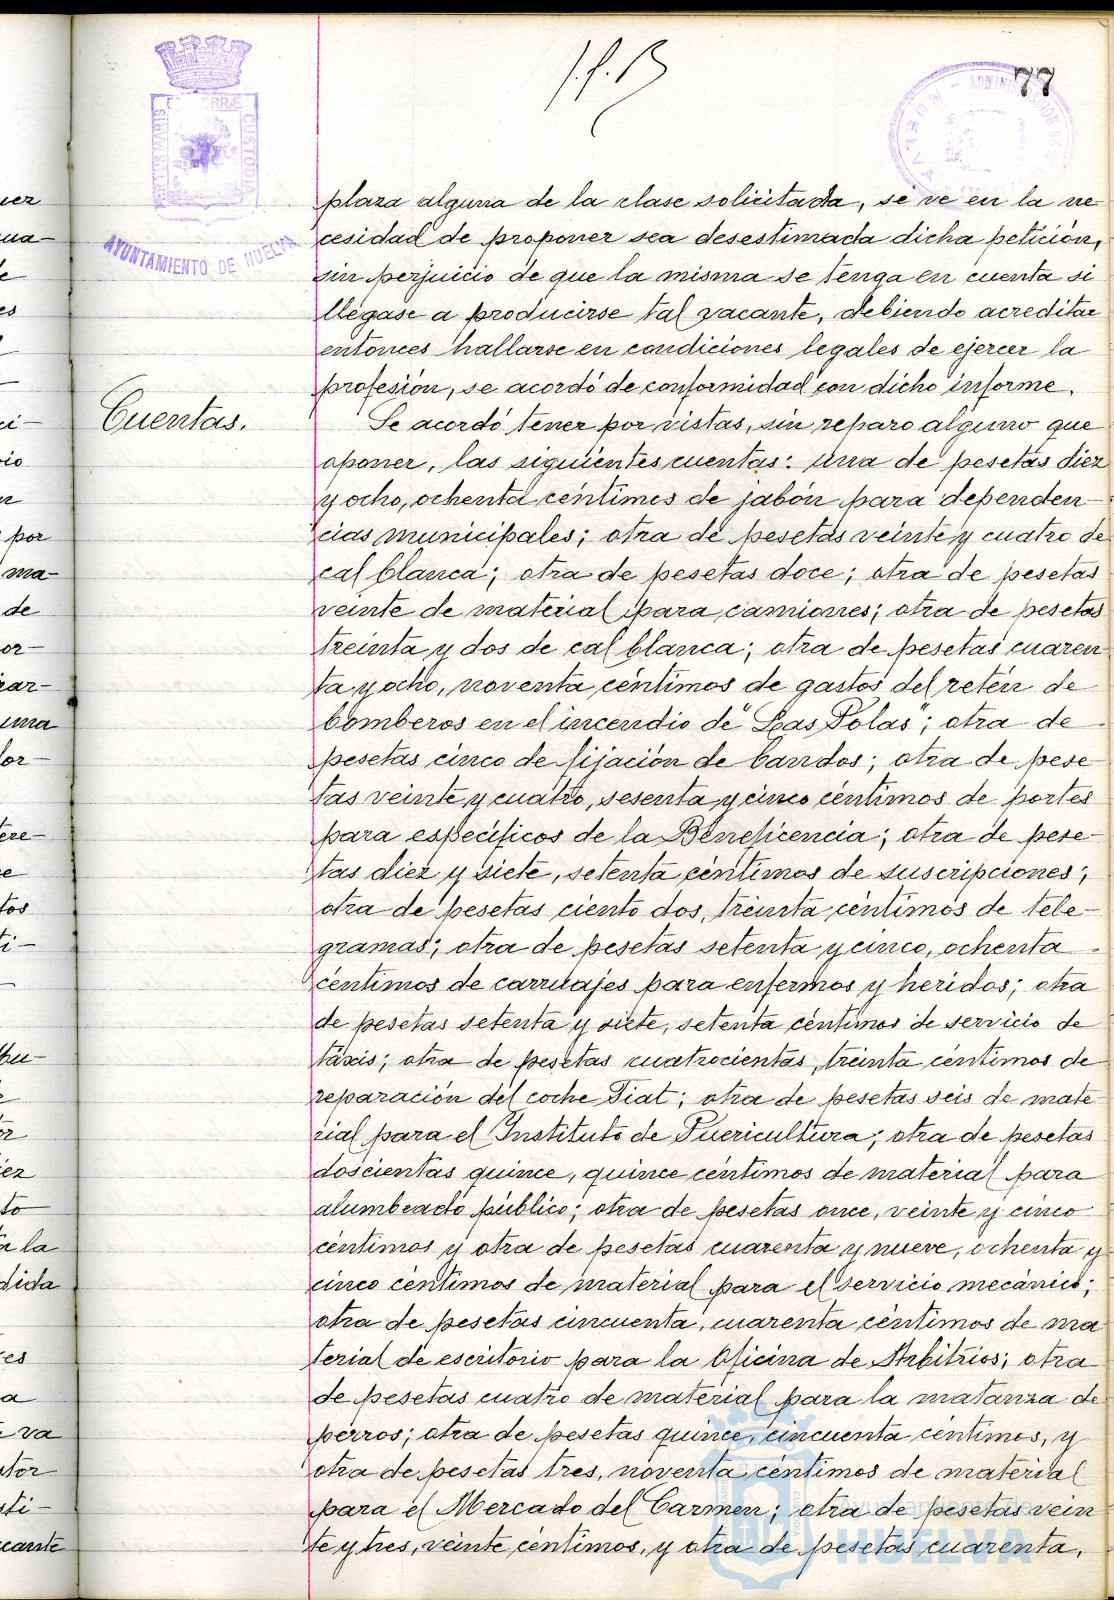 77
AYUNTAMIENTO DE HUELVA
plaza alguna de la clase solicitada, se ve en la ne-
cesidad de proponer sea desestimada dicha petición,
sin perjuicio de que la misma se tenga en cuenta si
llegase a producirse tal vacante, debiendo acreditar
entonces hallarse en condiciones legales de ejercer la
profesión, se acordó de conformidad con dicho informe.
Cuentas.
Se acordó tener por vistas, sin reparo alguno que
oponer, las siguientes cuentas: una de pesetas diez
y ocho, ochenta céntimos de jabón para dependen-
cias municipales; otra de pesetas veinte y cuatro de
cal blanca; otra de pesetas doce; otra de pesetas
veinte de material para camiones; otra de pesetas
treinta y dos de cal blanca; otra de pesetas cuaren
ta y ocho, noventa céntimos de gastos del retén de
bomberos en el incendio de "Las Polas"; otra de
pesetas cinco de fijación de bandos; otra de pese-
tas veinte y cuatro, sesenta y cinco céntimos de portes
para específicos de la Beneficencia; otra de pese-
tas diez y siete, setenta céntimos de suscripciones;
otra de pesetas ciento dos, treinta céntimos de tele-
gramas; otra de pesetas setenta y cinco, ochenta
céntimos de carruajes para enfermos y heridos; otra
de pesetas setenta y siete, setenta céntimos de servicio de
táxis; otra de pesetas cuatrocientas, treinta céntimos de
reparación del coche Fiat; otra de pesetas seis de mate-
rial para el Instituto de Puericultura; otra de pesetas
doscientas quince, quince céntimos de material para
alumbrado público; otra de pesetas once, veinte y cinco
céntimos y otra de pesetas cuarenta y nueve, ochenta y
cinco céntimos de material para el servicio mecánico;
otra de pesetas cincuenta, cuarenta céntimos de ma
terial de escritorio para la Oficina de Arbitrios; otra
de pesetas cuatro de material para la matanza de
perros; otra de pesetas quince, cincuenta céntimos, y
otra de pesetas tres, noventa céntimos de material
para el Mercado del Carmen; otra de pesetas vein
te y tres, veinte céntimos, y otra de pesetas cuarenta,
Ayuntamiento de
HUELVA